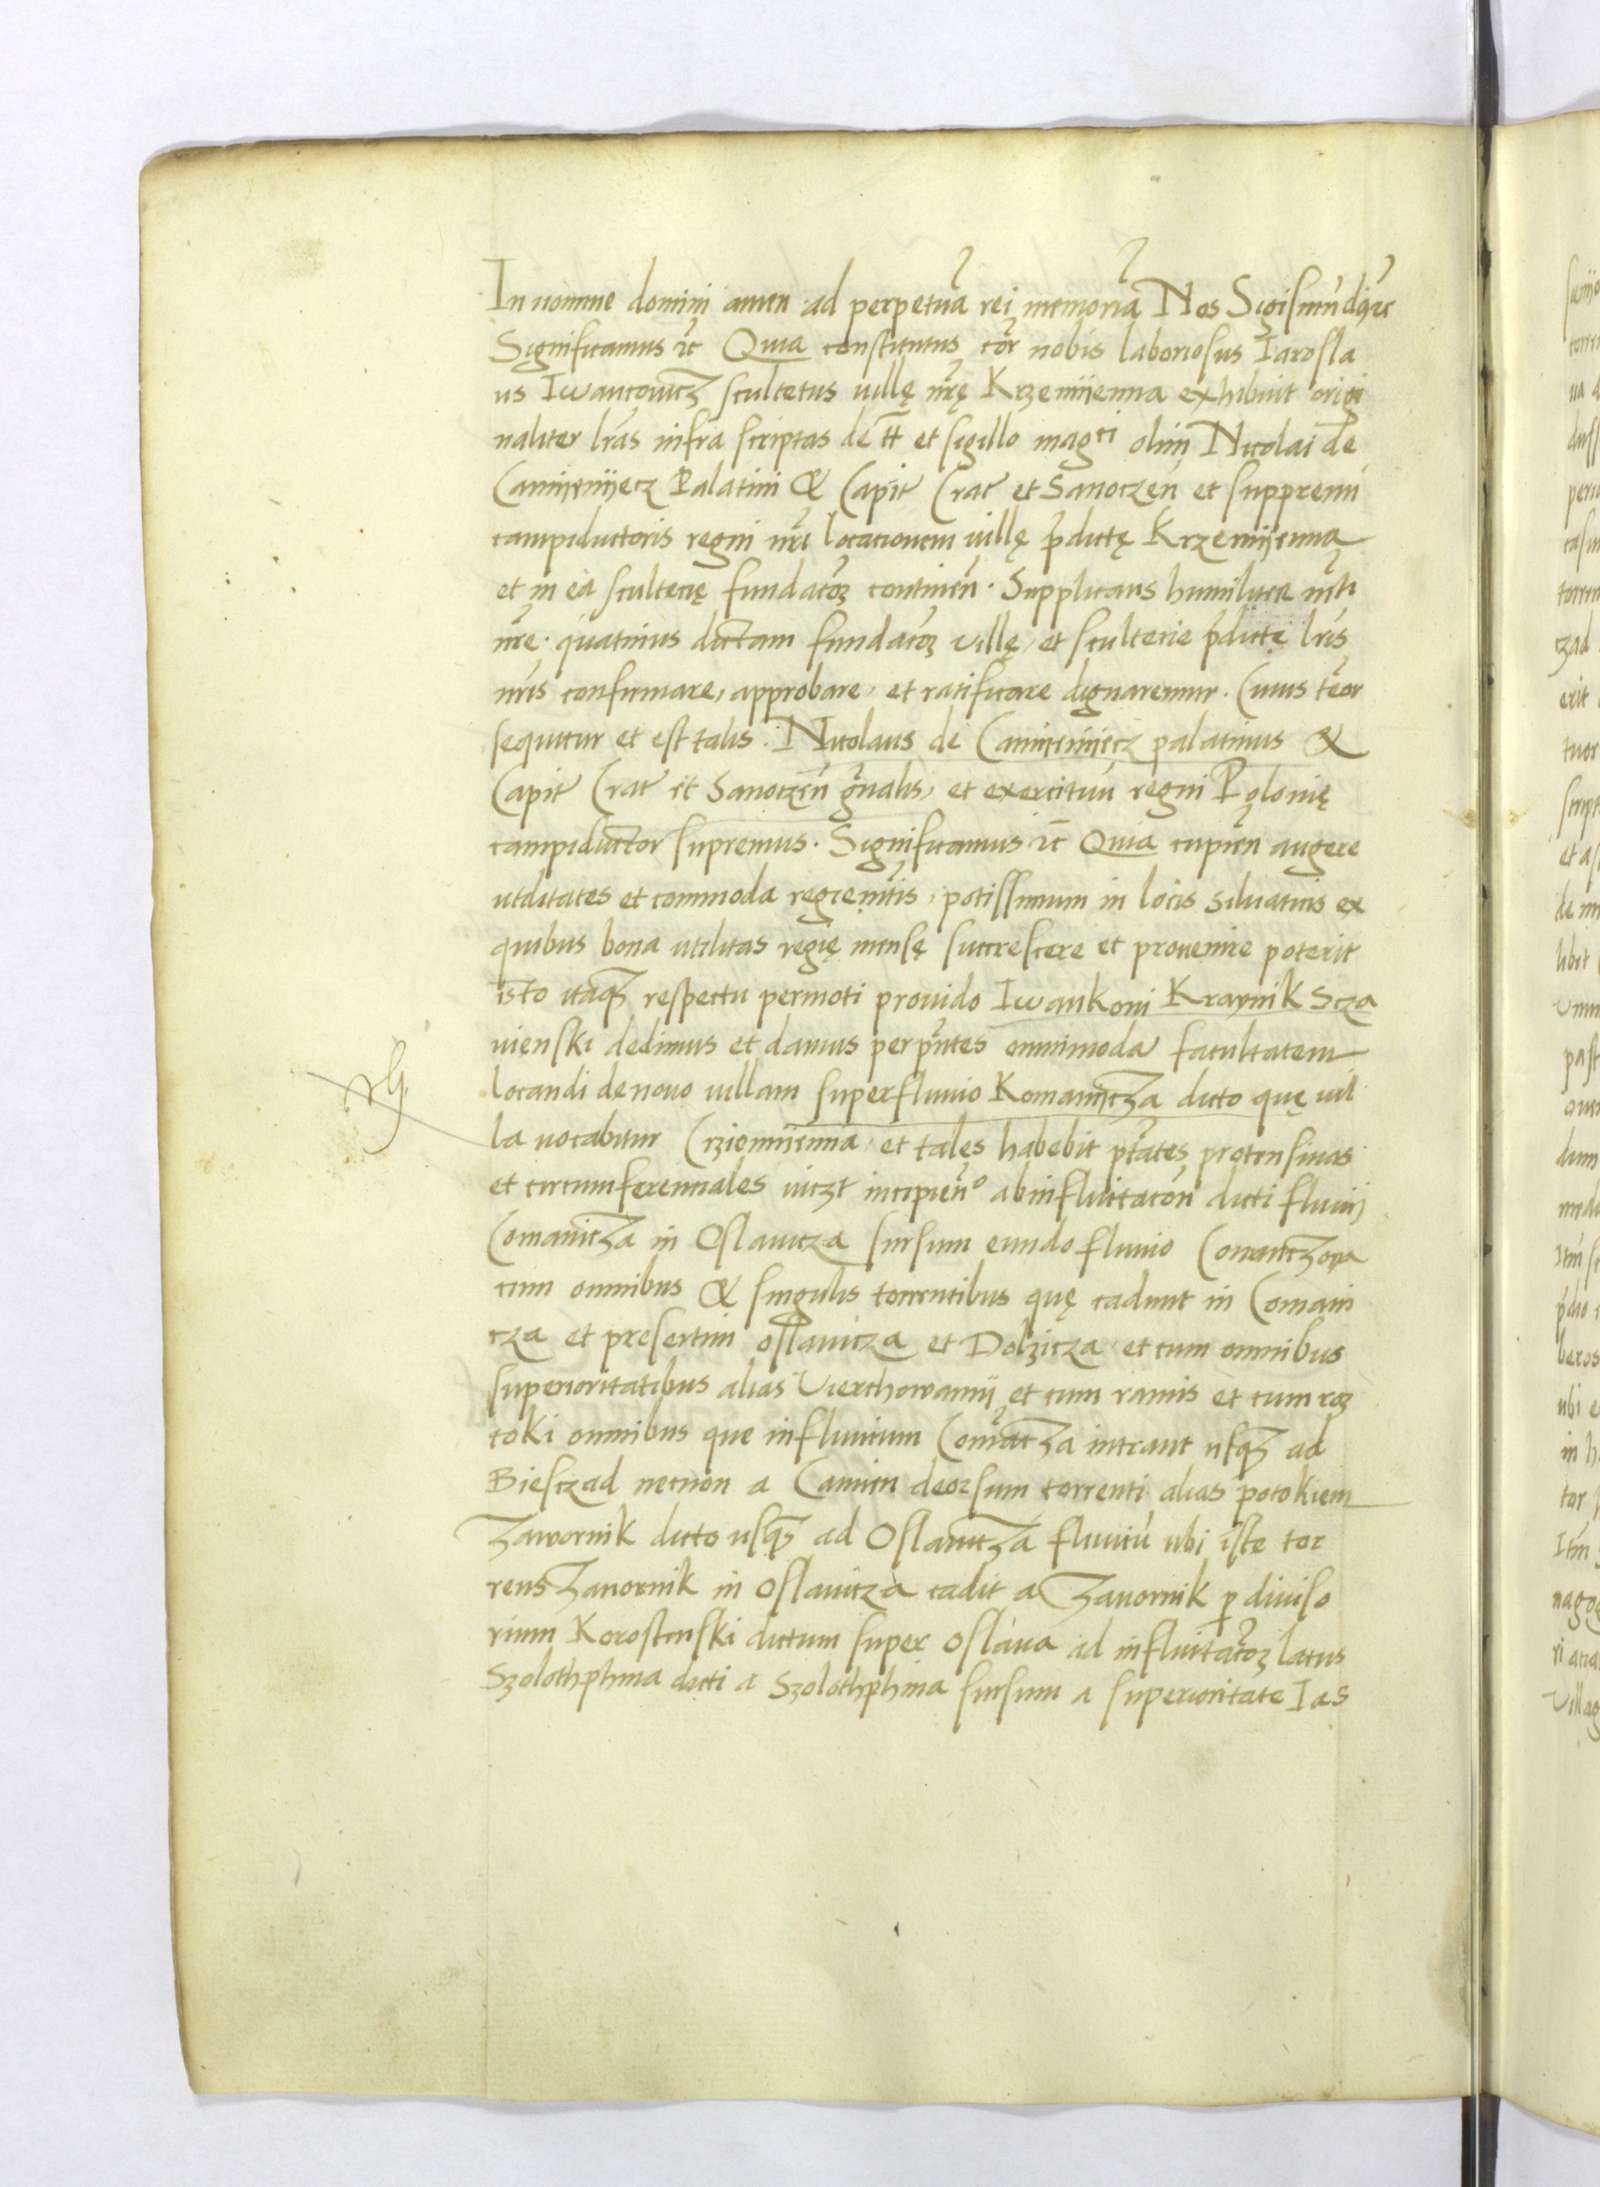 In nomine domini amen ad perpetuã rei memoriã Nos Sigismũdus ꝛc
Significamus ꝛc Quia constitutus cor̃ nobis laboriosus Iarosla
us Iwancouicz scultetus uillę nr̃ę Krzemyenna exhibuit origi
naliter lr̃as infra scriptas de tt̃ et sigillo mag^ci olim Nicolai de
Camyenyecz Palatini & Capit Crac et Sanoczeñ et suppremi
campiductoris regni nr̃i locacionem uillę p̃dictę Krzemyenna
et in ea scultecię fundacoz̃ continen̄. Supplicans humiliter mti
nr̃e. quatinus dictam fundacoz̃ villę, et scultecie p̃dictę lr̃is
nr̃is confirmare, approbare, et ratificare dignaremur. Cuius teor̃
sequitur et est talis. Nicolaus de Camyenyecz palatinus &
Capit Crac et Sanoczeñ gñalis, et exercituũ regni Polonię
campiductor supremus. Significamus ꝛc Quia cupien̄ augere
utilitates et commoda regię mtis, potissimum in locis siluaticis ex
quibus bona utilitas regię mensę succrescere et prouenire poterit
isto itaq̃ respectu permoti prouido Iwankoni Kraynik Scza
uienski dedimus et damus per pñtes omnimoda facultatem
locandi de nouo uillam super fluuio Komanicza dicto quę uil
la uocabitur Crziemienna et tales habebit ptates protensiuas
et circumferenciales uiczt incipien̄ᵒ ab influitacoñ dicti fluuij
Comanicza in Oslauicza sursum eundo fluuio Comaniczova
cum omnibus & singulis torrentibus quę cadunt in Comani
cza et presertim oslauicza et Dolzicza et cum omnibus
superioritatibus alias Vierchowamij et cum ramis et cum roz
toki omnibus que in fluuium Comanicza intrant usq̃ ad
Biesczad necnon a Camien deorsum torrenti alias potokiem
Zawornik dicto usq̃ ad Oslauicza fluuiũ ubi iste tor
rens Zauornik in Oslauicza cadit a Zauornik p diuiso
rium Korostenski dictum super oslaua ad influitacoz̃ latus
Szolothphina dicti a Szolothphina sursum a superioritate Ias